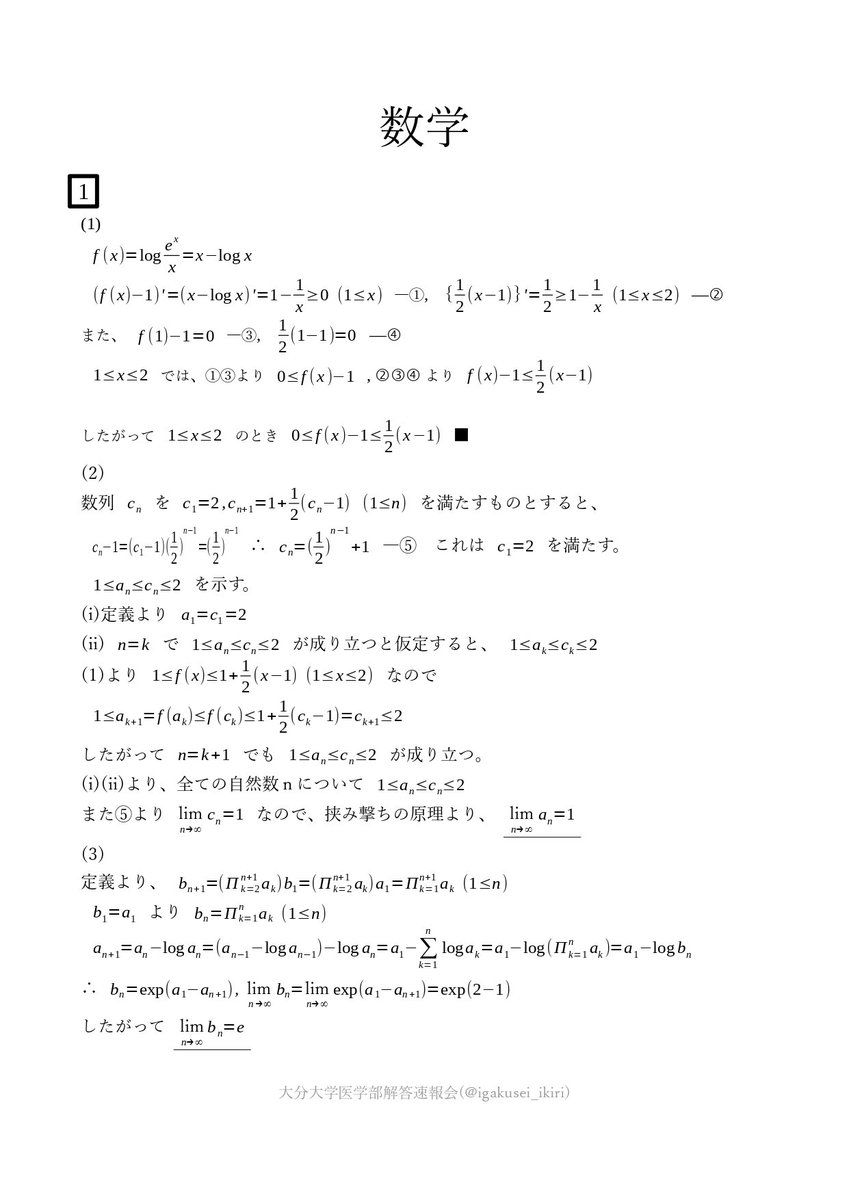 数学
1
(1)
f(x)=log e^x/x=x−log x
(f(x)−1)'=(x−log x)'=1−1/x≥0 (1≤x) —①, {1/2(x−1)}'=1/2≥1−1/x (1≤x≤2) —②
また、 f(1)−1=0 —③, 1/2(1−1)=0 —④
1≤x≤2 では、①③より 0≤f(x)−1 ,②③④より f(x)−1≤1/2(x−1)
したがって 1≤x≤2 のとき 0≤f(x)−1≤1/2(x−1) ■
(2)
数列 c_n を c_1=2,c_{n+1}=1+1/2(c_n−1) (1≤n) を満たすものとすると、
c_n−1=(c_1−1)(1/2)^{n−1}=(1/2)^{n−1} ∴ c_n=(1/2)^{n−1}+1 —⑤ これは c_1=2 を満たす。
1≤a_n≤c_n≤2 を示す。
(i)定義より a_1=c_1=2
(ii) n=k で 1≤a_n≤c_n≤2 が成り立つと仮定すると、 1≤a_k≤c_k≤2
(1)より 1≤f(x)≤1+1/2(x−1) (1≤x≤2) なので
1≤a_{k+1}=f(a_k)≤f(c_k)≤1+1/2(c_k−1)=c_{k+1}≤2
したがって n=k+1 でも 1≤a_n≤c_n≤2 が成り立つ。
(i)(ii)より、全ての自然数 n について 1≤a_n≤c_n≤2
また⑤より lim_{n→∞} c_n=1 なので、挟み撃ちの原理より、 lim_{n→∞} a_n=1
(3)
定義より、 b_{n+1}=(Π_{k=2}^{n+1} a_k)b_1=(Π_{k=2}^{n+1} a_k)a_1=Π_{k=1}^{n+1} a_k (1≤n)
b_1=a_1 より b_n=Π_{k=1}^{n} a_k (1≤n)
a_{n+1}=a_n−log a_n=(a_{n−1}−log a_{n−1})−log a_n=a_1−∑_{k=1}^{n} log a_k=a_1−log(Π_{k=1}^{n} a_k)=a_1−log b_n
∴ b_n=exp(a_1−a_{n+1}), lim_{n→∞} b_n=lim_{n→∞} exp(a_1−a_{n+1})=exp(2−1)
したがって lim_{n→∞} b_n=e
大分大学医学部解答速報会(@igakusei_ikiri)